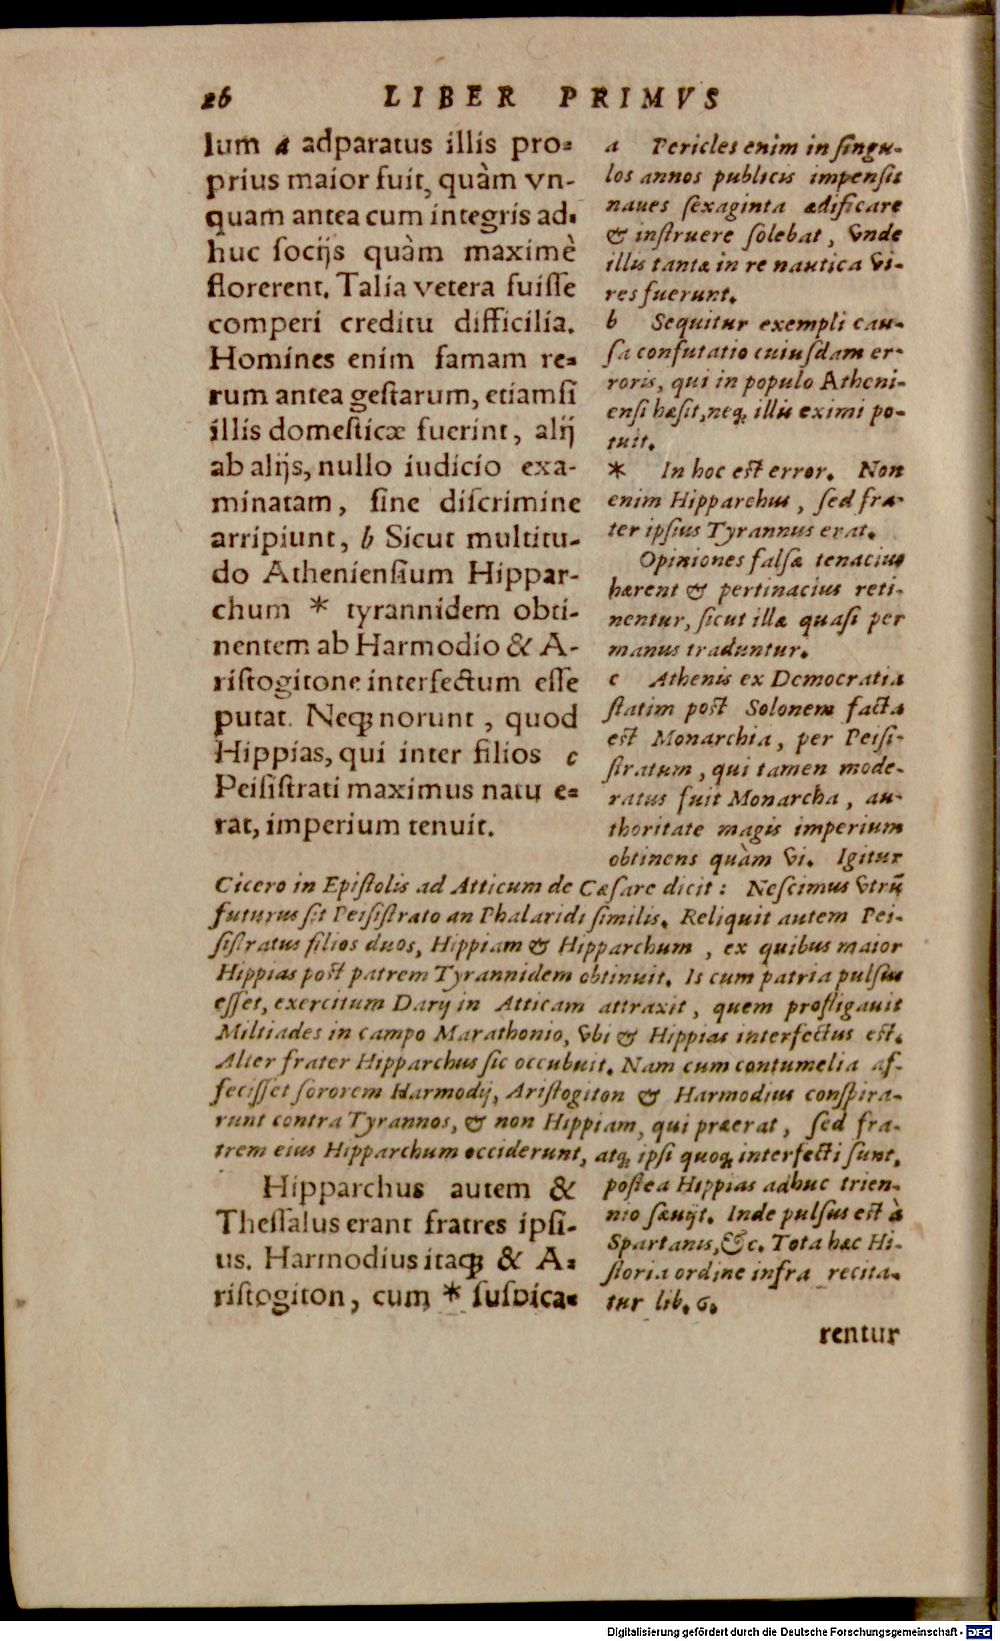 26 LIBER PRIMVS
lum a adparatus illis pro=
prius maior fuit, quàm vn-
quam antea cum integris ad=
huc socijs quàm maximè
florerent. Talia vetera fuisse
comperi creditu difficilia.
Homines enim famam re=
rum antea gestarum, etiamsi
illis domesticæ fuerint, alij
ab alijs, nullo iudicio exa-
minatam, sine discrimine
arripiunt, b Sicut multitu-
do Atheniensium Hippar-
chum * tyrannidem obti-
nentem ab Harmodio & A-
ristogitone interfectum esse
putat. Neq; norunt, quod
Hippias, qui inter filios c
Peisistrati maximus natu e=
rat, imperium tenuit.
a Pericles enim in singu-
los annos publicis impensis
naues sexaginta ædificare
& instruere solebat, vnde
illis tantæ in re nautica vi-
res fuerunt.
b Sequitur exempli cau-
sa confutatio cuiusdam er-
roris, qui in populo Atheni-
ensi hæsit, neq; illis eximi po-
tuit.
* In hoc est error. Non
enim Hipparchus, sed fra-
ter ipsius Tyrannus erat.
Opiniones falsæ tenacius
hærent & pertinacius reti-
nentur, sicut illæ quasi per
manus traduntur.
c Athenis ex Democratia
statim post Solonem facta
est Monarchia, per Peisi-
stratum, qui tamen mode-
ratus fuit Monarcha, au-
thoritate magis imperium
obtinens quàm vi. Igitur
Cicero in Epistolis ad Atticum de Cæsare dicit: Nescimus vtrũ
futurus sit Peisistrato an Phalaridi similis. Reliquit autem Pei-
sistratus filios duos, Hippiam & Hipparchum, ex quibus maior
Hippias post patrem Tyrannidem obtinuit. Is cum patria pulsus
esset, exercitum Darij in Atticam attraxit, quem profligauit
Miltiades in campo Marathonio, vbi & Hippias interfectus est.
Alter frater Hipparchus sic occubuit. Nam cum contumelia af-
fecisset sororem Harmodij, Aristogiton & Harmodius conspira-
runt contra Tyrannos, & non Hippiam, qui præerat, sed fra-
trem eius Hipparchum occiderunt, atq; ipsi quoq; interfecti sunt,
Hipparchus autem &
Thessalus erant fratres ipsi-
us. Harmodius itaq; & A=
ristogiton, cum * suspica=
postea Hippias adhuc trien-
nio sæuijt. Inde pulsus est à
Spartanis, &c. Tota hæc Hi-
storia ordine infra recita-
tur lib. 6.
rentur
Digitalisierung gefördert durch die Deutsche Forschungsgemeinschaft - DFG